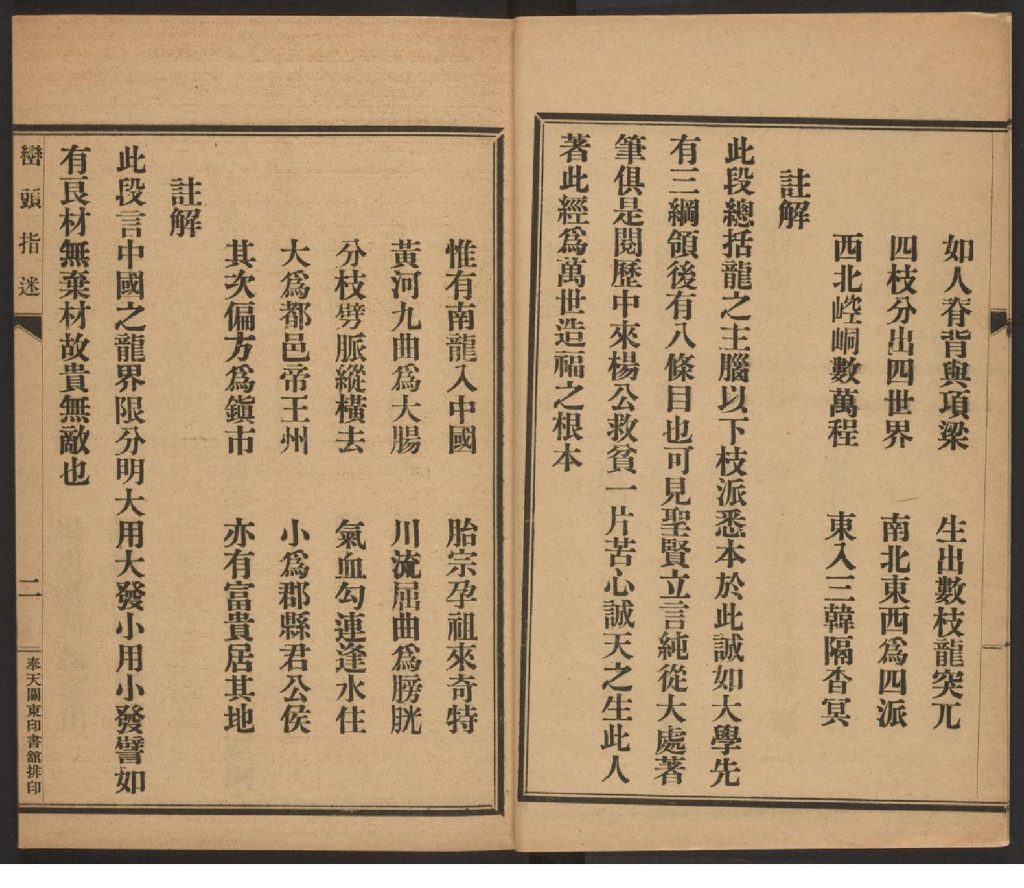 如人脊背與項梁　生出數枝龍突兀
四枝分出四世界　南北東西爲四派
西北崆峒數萬程　東入三韓隔杳冥
註解
此段總括龍之主腦以下枝派悉本於此誠如大學先
有三綱領後有八條目也可見聖賢立言純從大處著
筆俱是閱歷中來楊公救貧一片苦心誠天之生此人
著此經爲萬世造福之根本
惟有南龍入中國　胎宗孕祖來奇特
黃河九曲爲大腸　川流屈曲爲膀胱
分枝劈脈縱橫去　氣血勾連逢水住
大爲都邑帝王州　小爲郡縣君公侯
其次偏方爲鎭市　亦有富貴居其地
註解
此段言中國之龍界限分明大用大發小用小發譬如
有良材無棄材故貴無敵也
巒頭指迷
二
奉天關東印書館排印